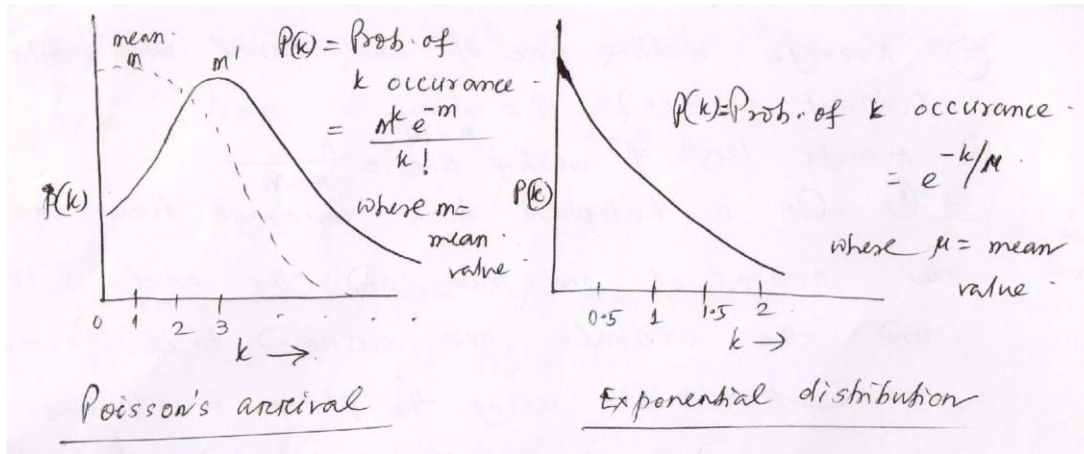 mean
m
m'
P(k) = Prob. of
k occurance
= m^k e^-m / k!
where m =
mean
value
P(k)
0 1 2 3
k →
Poisson's arrival
P(k)=Prob. of k occurance
= e^-k/μ
where μ = mean
value
P(k)
0.5 1 1.5 2
k →
Exponential distribution